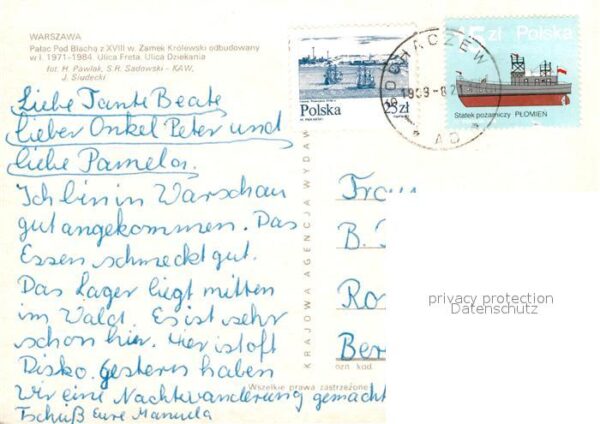 WARSZAWA
Pałac Pod Blachą z XVIII w. Zamek Królewski odbudowany
w l. 1971-1984. Ulica Freta. Ulica Dziekania
fot. H. Pawlak, S.R. Sadowski - KAW,
J. Siudecki
Liebe Tante Beate
lieber Onkel Peter und
liebe Pamela.
Ich bin in Warschau
gut angekommen. Das
Essen schmeckt gut.
Das Lager liegt mitten
im Wald. Es ist sehr
schön hier. Hier ist oft
Disko. gestern haben
wir eine Nachtwanderung gemacht
Tschüß Eure Manuela
KRAJOWA AGENCJA WYDAW
Wszelkie prawa zastrzeżone
Polska
25 zł
SOCHACZEW
AD
15 zł Polska
Statek pożarniczy PŁOMIEŃ
Frau
B.
Ro
Ber
ozn. kod
privacy protection
Datenschutz